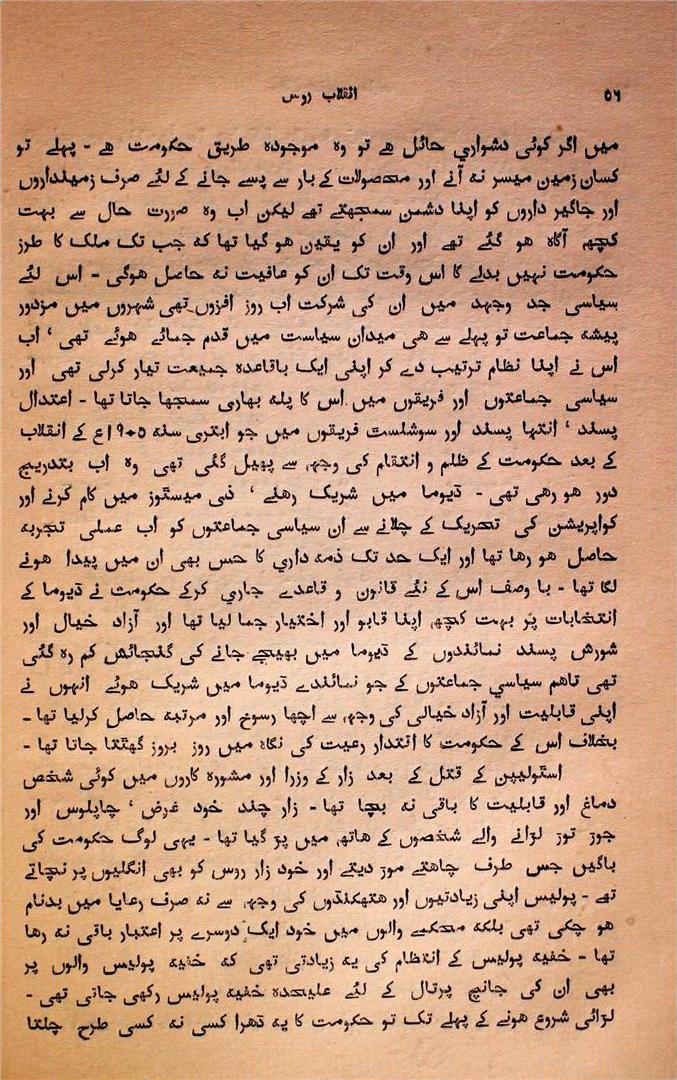 ۵۶ انقلاب روس
میں اگر کوئی دشواري حائل هے تو وہ موجودہ طریق حکومت هے - پہلے تو
کسان زمین میسر نہ آنے اور محصولات کے بار سے پسے جانے کے لئے صرف زمینداروں
اور جاگیر داروں کو اپنا دشمن سمجھتے تھے لیکن اب وہ صورت حال سے بہت
کچھہ آگاہ هو گئے تھے اور ان کو یقین هو گیا تھا کہ جب تک ملک کا طرز
حکومت نہیں بدلے کا اس وقت تک ان کو عافیت نہ حاصل هوگی - اس لئے
سیاسی جد وجہد میں ان کی شرکت اب روز افزوں تھی شہروں میں مزدور
پیشہ جماعت تو پہلے سے هی میدان سیاست میں قدم جمائے هوئے تھی ‘ اب
اس نے اپنا نظام ترتیب دے کر اپنی ایک باقاعدہ جمیعت تیار کرلی تھی اور
سیاسی جماعتوں اور فریقوں میں اس کا پلہ بھاری سمجھا جاتا تھا - اعتدال
پسند ‘ انتہا پسند اور سوشلسٹ فریقوں میں جو ابتری سنہ ۱۹۰۵ع کے انقلاب
کے بعد حکومت کے ظلم و انتقام کی وجہہ سے پھیل گئی تھی وہ اب بتدریج
دور هو رهی تھی - ڈیوما میں شریک رهنے ‘ ذمی میسٹوز میں کام کرنے اور
کواپریشن کی تحریک کے چلانے سے ان سیاسی جماعتوں کو اب عملی تجربہ
حاصل هو رها تھا اور ایک حد تک ذمہ داري کا حس بھی ان میں پیدا هونے
لگا تھا - با وصف اس کے نئے قانون و قاعدے جاري کرکے حکومت نے ڈیوما کے
انتخابات پر بہت کچھہ اپنا قابو اور اختیار جما لیا تھا اور آزاد خیال اور
شورش پسند نمائندوں کے ڈیوما میں بھیجے جانے کی گنجائش کم رہ گئی
تھی تاهم سیاسي جماعتوں کے جو نمائندے ڈیوما میں شریک هوئے انہوں نے
اپنی قابلیت اور آزاد خیالی کی وجہہ سے اچھا رسوخ اور مرتبہ حاصل کرلیا تھا -
بخلاف اس کے حکومت کا اقتدار رعیت کی نگاہ میں روز بروز گھٹتا جاتا تھا -
اسٹولیپن کے قتل کے بعد زار کے وزرا اور مشورہ کاروں میں کوئی شخص
دماغ اور قابلیت کا باقی نہ بچا تھا - زار چند خود غرض ‘ چاپلوس اور
جوڑ توڑ لڑانے والے شخصوں کے هاتھہ میں پڑ گیا تھا - یہی لوگ حکومت کی
باگیں جس طرف چاهتے موڑ دیتے اور خود زار روس کو بھی انگلیوں پر نچاتے
تھے - پولیس اپنی زیادتیوں اور هتھکنڈوں کی وجہہ سے نہ صرف رعایا میں بدنام
هو چکی تھی بلکہ محکمے والوں میں خود ایک دوسرے پر اعتبار باقی نہ رها
تھا - خفیہ پولیس کے انتظام کی یہ زیادتی تھی کہ خفیہ پولیس والوں پر
بھی ان کی جانچ پرتال کے لئے علیحدہ خفیہ پولیس رکھی جاتی تھی -
لڑائی شروع هونے کے پہلے تک تو حکومت کا یہ ڈھرا کسی نہ کسی طرح چلتا